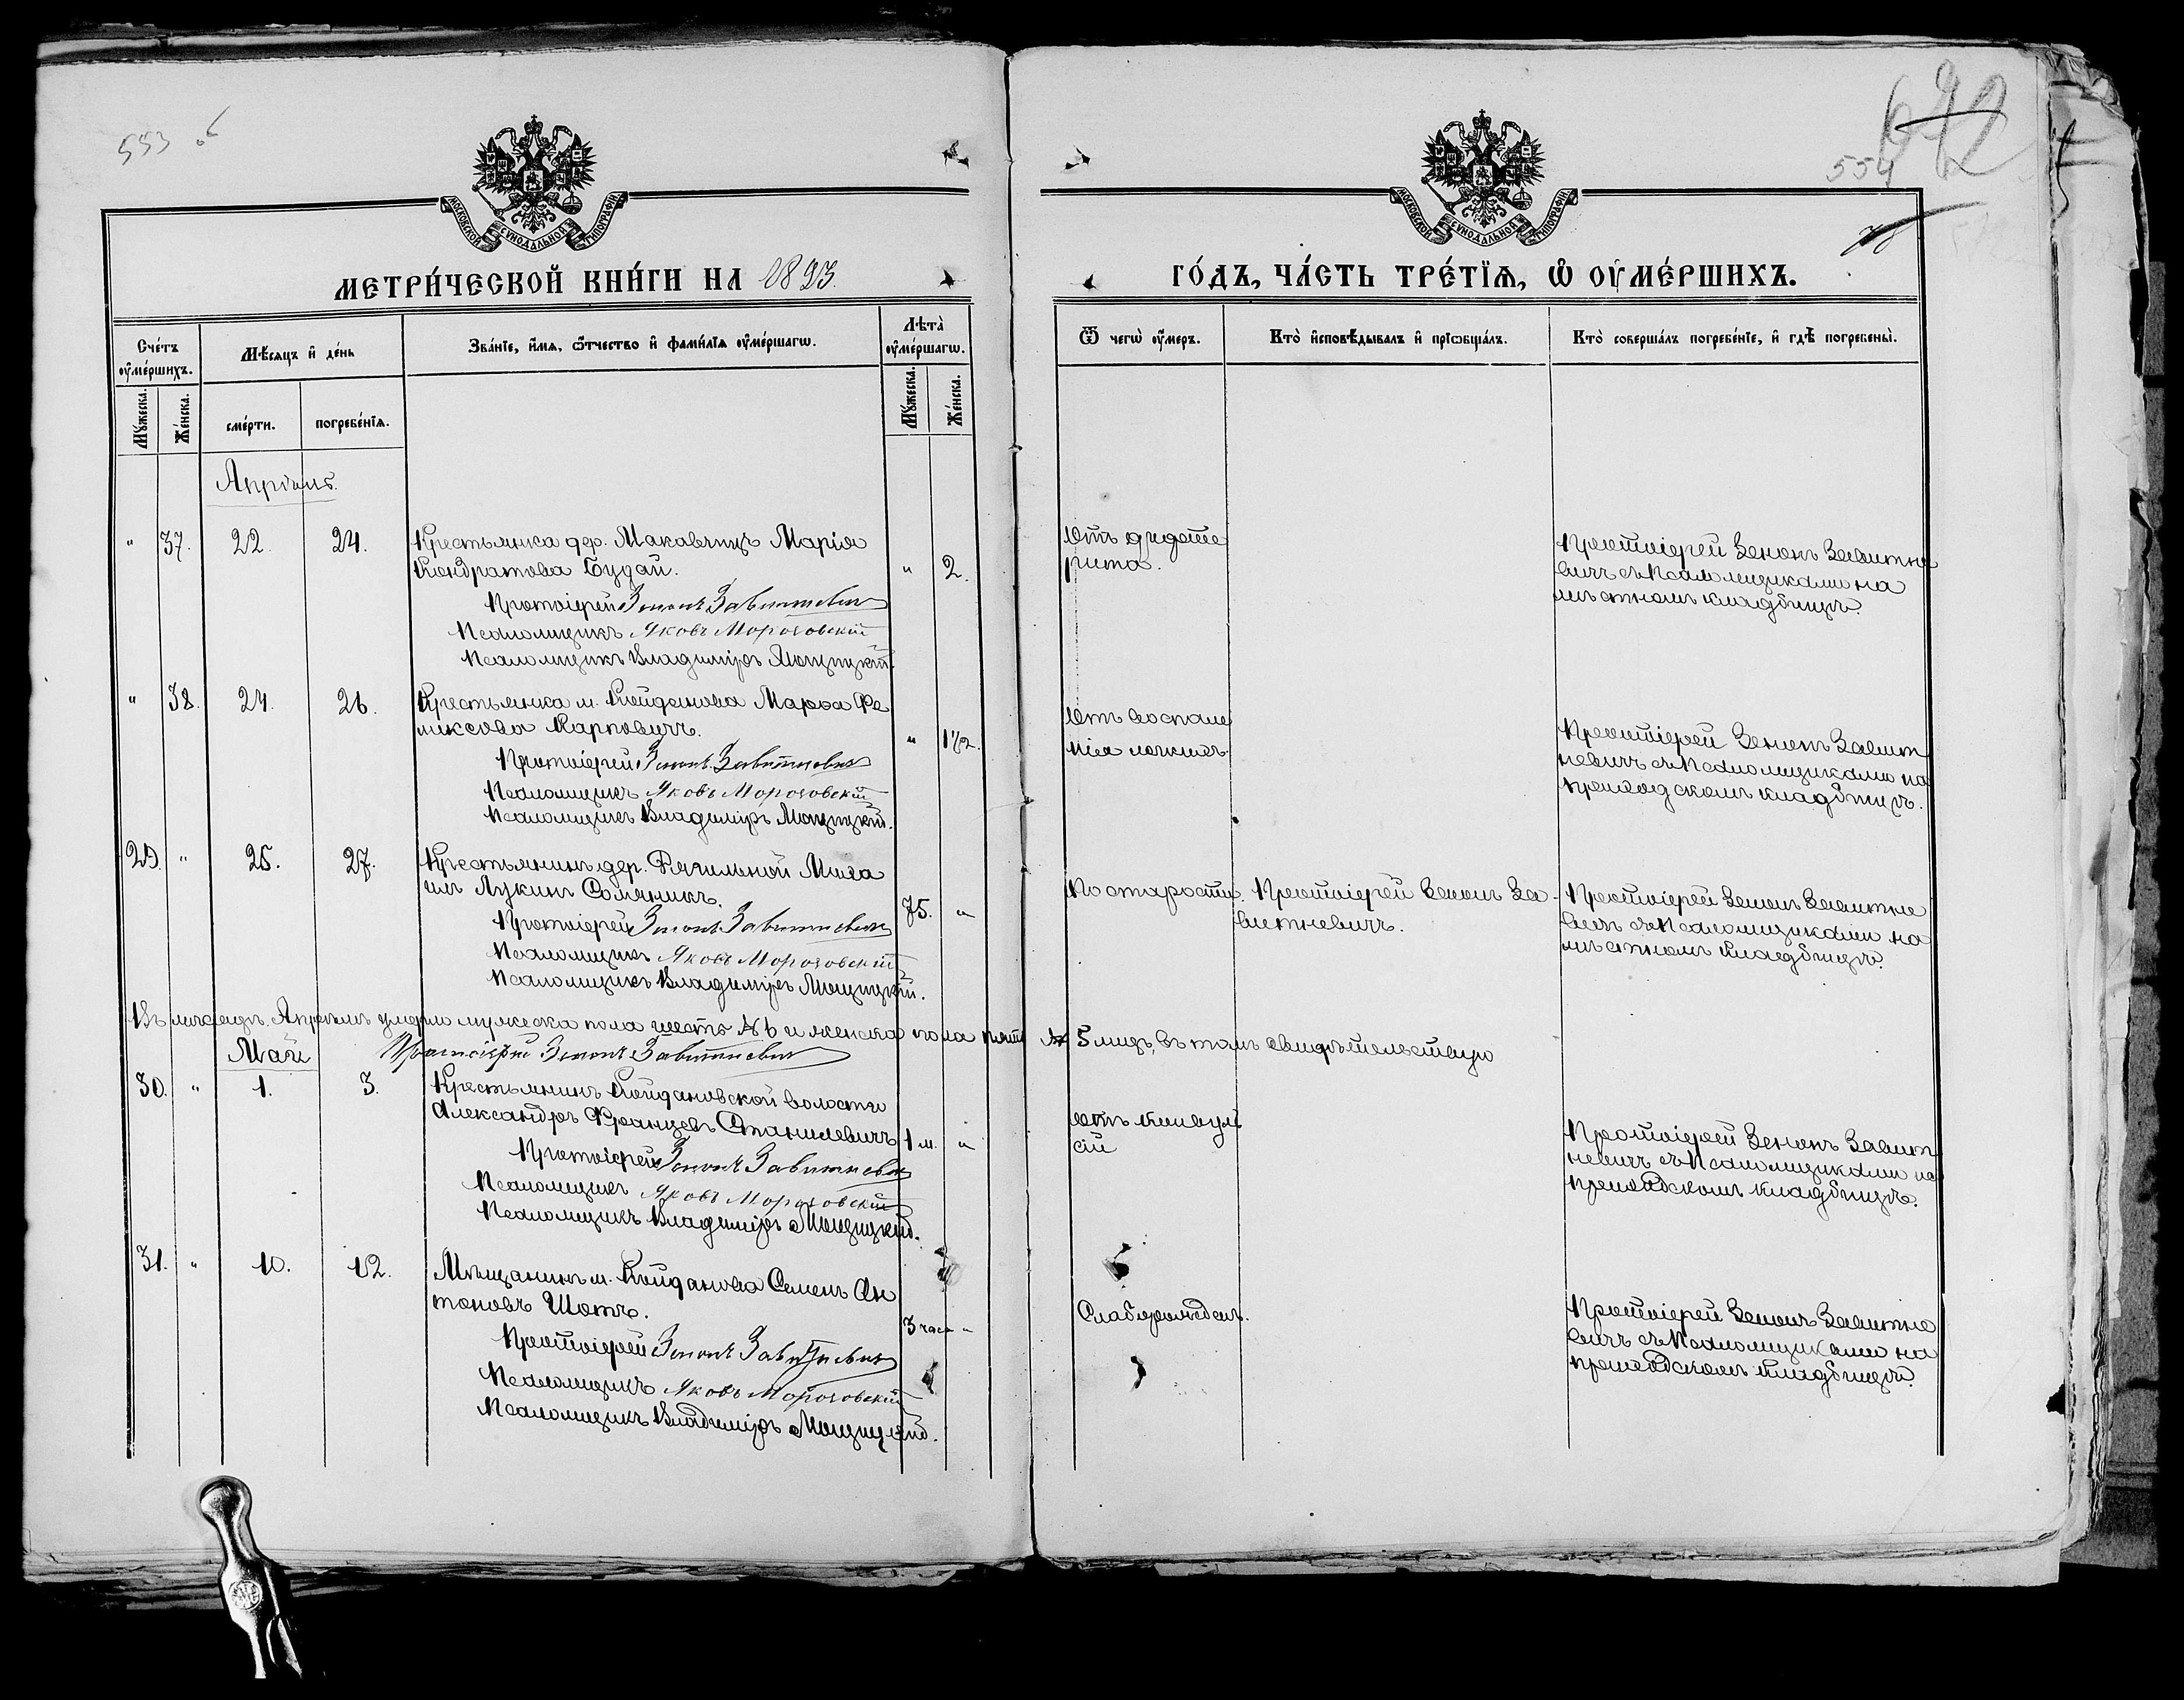 553 об
554
МОСКОВСКОЙ СѴНОДАЛЬНОЙ ТИПОГРАФІИ
МОСКОВСКОЙ СѴНОДАЛЬНОЙ ТИПОГРАФІИ
МЕТРИ́ЧЕСКОЙ КНИ́ГИ НА 1893.
ГО́ДЪ, ЧА́СТЬ ТРЕ́ТІѦ, Ѡ҆ ОУ҆МЕ́РШИХЪ.
Сче́тъ оу҆ме́ршихъ.
Мѣ́сѧцъ и҆ де́нь
Зва́нїе, и҆́мѧ, ѻ҆́тчество и҆ фами́лїѧ оу҆ме́ршагѡ.
Лѣ́та̀ оу҆ме́ршагѡ.
Ѿ чегѡ̀ оу҆́меръ.
Кто̀ и҆сповѣ́дывалъ и҆ прїѡбща́лъ.
Кто̀ соверша́лъ погребе́нїе, и҆ гдѣ̀ погребены̀.
Мꙋ́жеска.
Же́нска.
сме́рти.
погребе́нїѧ.
Мꙋ́жеска.
Же́нска.
Апрѣль.
" 37. 22. 24. Крестьянка дер. Макавчицъ Марія
Кондратова Будай. " 2.
Протоіерей Зенонъ Завитневич
Псаломщикъ Яковъ Морозовскій
Псаломщикъ Владиміръ Мощицкій.
Отъ дифте
рита.
Протоіерей Зенонъ Завитне
вичъ съ Псаломщиками на
мѣстномъ кладбищѣ.
" 38. 24. 26. Крестьянка м. Койданова Марѳа Фе
ликсова Карповичъ. " 1 1/2.
Протоіерей Зенонъ Завитневич
Псаломщикъ Яковъ Морозовскій
Псаломщикъ Владиміръ Мощицкій.
Отъ воспале
нія легкихъ.
Протоіерей Зенонъ Завит
невичъ съ Псаломщиками на
приходскомъ кладбищѣ.
29. " 25. 27. Крестьянинъ дер. Михаилъ Лукинъ
75. "
Протоіерей Зенонъ Завитневич
Псаломщикъ Яковъ Морозовскій
Псаломщикъ Владиміръ Мощицкій.
По старости.
Протоіерей Зенонъ За-
витневичъ.
Протоіерей Зенонъ Завитне
вичъ съ Псаломщиками на
мѣстномъ кладбищѣ.
Въ мѣсяцѣ Апрѣлѣ умерло мужеска пола шесть № 6 и женска пола пять № 5 лицъ, въ томъ свидѣтельствую
Протоіерей Зенонъ Завитневич
Май
30. " 1. 3. Крестьянинъ Койдановской волости
Александръ Францевъ Станилевичъ 1 м. "
Протоіерей Зенонъ Завитневич
Псаломщикъ Яковъ Морозовскій
Псаломщикъ Владиміръ Мощицкій.
Отъ конвуль
сій
Протоіерей Зенонъ Завит
невичъ съ Псаломщиками на
приходскомъ кладбищѣ.
31. " 10. 12. Мѣщанинъ м. Койданова Семенъ Ан
тоновъ Шотъ. 3 часа "
Протоіерей Зенонъ Завитневич
Псаломщикъ Яковъ Морозовскій
Псаломщикъ Владиміръ Мощицкій.
Слаборожден.
Протоіерей Зенонъ Завитне
вичъ съ Псаломщиками на
приходскомъ кладбищѣ.